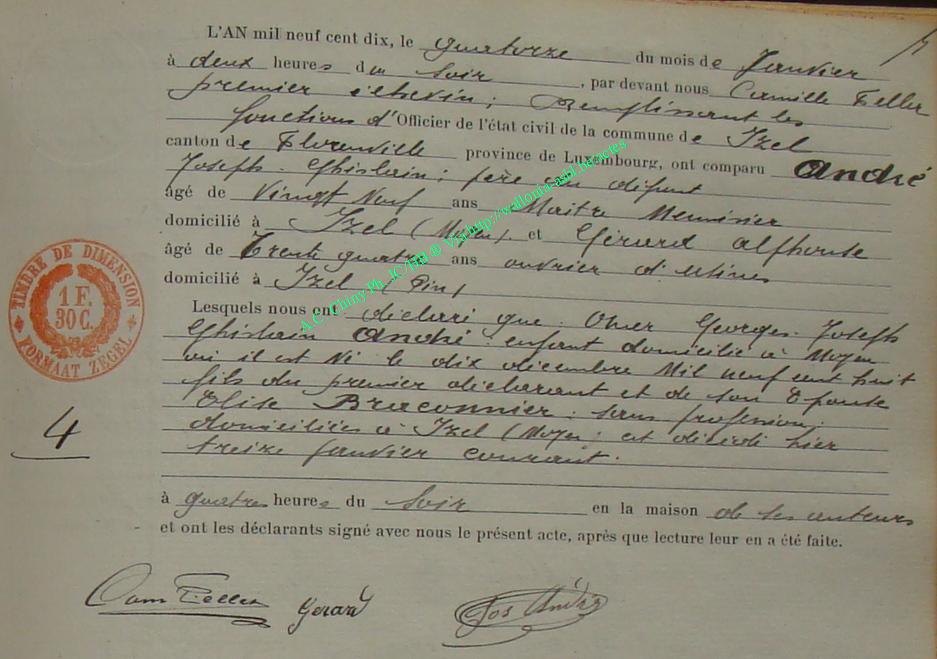 L'AN mil neuf cent dix, le quatorze du mois de Janvier
à deux heures du soir, par devant nous Camille Feller
premier échevin; Remplissant les
fonctions d'Officier de l'état civil de la commune de Izel
canton de Florenville province de Luxembourg, ont comparu André
Joseph Ghislain; père du défunt
âgé de Vingt Neuf ans Maitre Menuisier
domicilié à Izel (Moyen). et Gérard Alphonse
âgé de Trente quatre ans ouvrier d'Usines
domicilié à Izel (Pin)
Lesquels nous ont déclaré que Omer Georges Joseph
Ghislain André enfant domicilié à Moyen
où il est Né le dix décembre Mil neuf cent huit
fils du premier déclarant et de son Epouse
Elise Braconnier: sans profession;
domiciliées à Izel (Moyen; est décédé hier
treize Janvier courant.
à quatre heures du soir en la maison de ses auteurs
et ont les déclarants signé avec nous le présent acte, après que lecture leur en a été faite.
Cam Feller Gerard Jos André
TIMBRE DE DIMENSION
1 F.
30 C.
FORMAAT ZEGEL
4
A C Chiny Ph JC/HB ® Via http://wallonia-asbl.be/actes